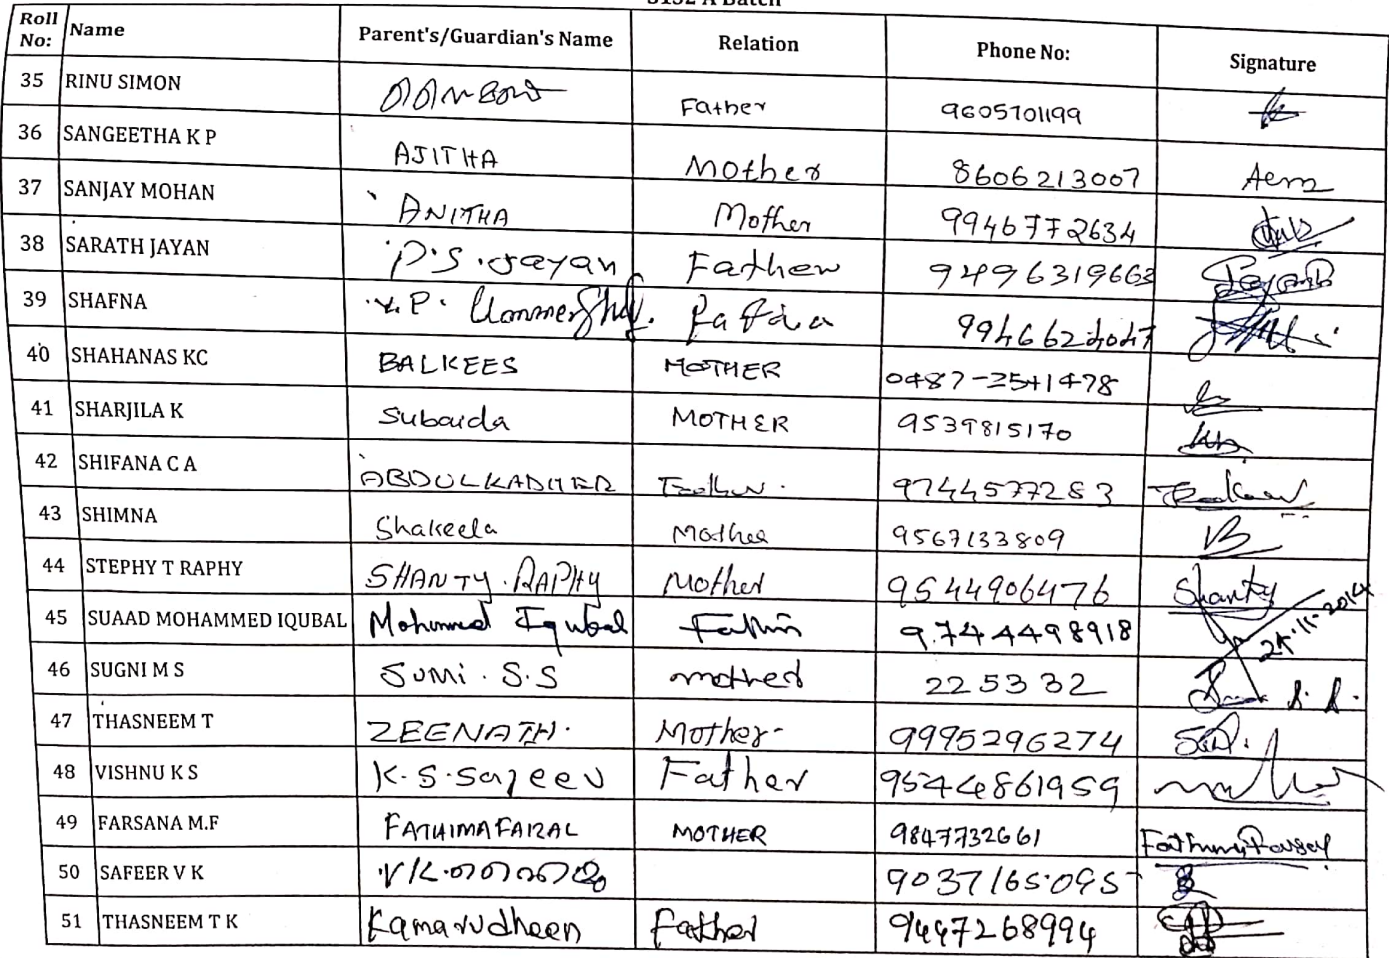 Roll No: Name Parent's/Guardian's Name Relation Phone No: Signature
35 RINU SIMON Father 9605701199
36 SANGEETHA K P AJITHA Mother 8606213007
37 SANJAY MOHAN ANITHA Mother 9946772634
38 SARATH JAYAN P.S.Jayan Father 9496319663
39 SHAFNA
40 SHAHANAS KC BALKEES MOTHER 0487-2541478
41 SHARJILA K Subaida MOTHER 9539815170
42 SHIFANA C A ABDULKADHER Father. 9744577283
43 SHIMNA Shakeela Mother 9567133809
44 STEPHY T RAPHY SHANTY.RAPHY Mother 9544906476 Shanty
45 SUAAD MOHAMMED IQUBAL Mohmmed Iqubal 9744498918 24.11.2014
46 SUGNI M S SUMI.S.S mother 225332
47 THASNEEM T ZEENATH. Mother 9995296274
48 VISHNU K S K.S.Sajeev Father 9544861959
49 FARSANA M.F FATHIMA FAIZAL MOTHER 9847732661
50 SAFEER V K V.K. 9037165095
51 THASNEEM T K Kamarudheen Father 9447268994